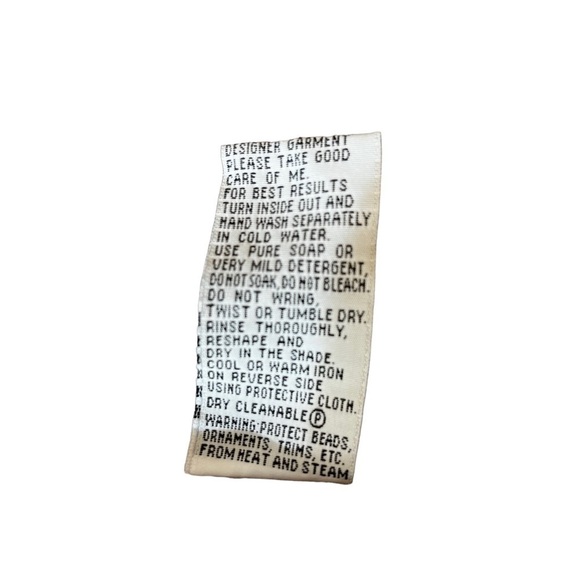 DESIGNER GARMENT
PLEASE TAKE GOOD
CARE OF ME.
FOR BEST RESULTS
TURN INSIDE OUT AND
HAND WASH SEPARATELY
IN COLD WATER.
USE PURE SOAP OR
VERY MILD DETERGENT,
DO NOT SOAK, DO NOT BLEACH.
DO NOT WRING,
TWIST OR TUMBLE DRY.
RINSE THOROUGHLY,
RESHAPE AND
DRY IN THE SHADE.
COOL OR WARM IRON
ON REVERSE SIDE
USING PROTECTIVE CLOTH.
DRY CLEANABLE Ⓟ
WARNING:PROTECT BEADS,
ORNAMENTS, TRIMS, ETC.
FROM HEAT AND STEAM